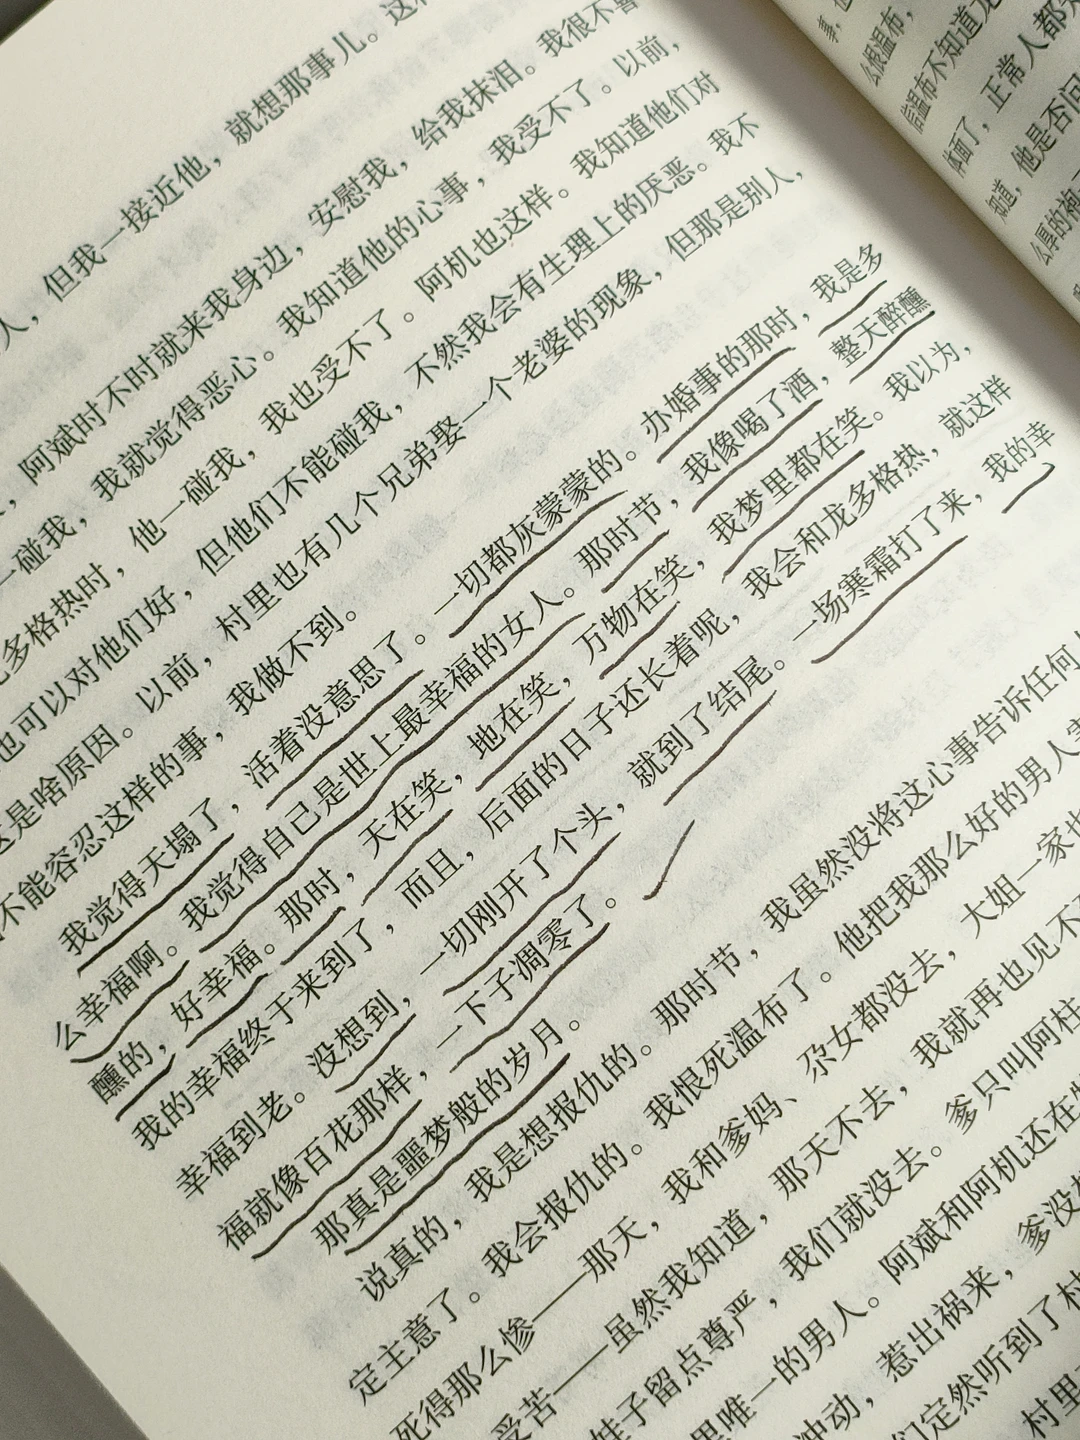 就想那事儿。这
人，但我一接近他，
阿斌时不时就来我身边，安慰我，给我抹泪。我很不喜
一碰我，我就觉得恶心。我知道他的心事，我受不了。以前，
多格热时，他一碰我，我也受不了。阿机也这样。我知道他们对
也可以对他们好，但他们不能碰我，不然我会有生理上的厌恶。我不
这是啥原因。以前，村里也有几个兄弟娶一个老婆的现象，但那是别人，
不能容忍这样的事，我做不到。
我觉得天塌了，活着没意思了。一切都灰蒙蒙的。办婚事的那时，我是多
么幸福啊。我觉得自己是世上最幸福的女人。那时节，我像喝了酒，整天醉醺
醺的，好幸福。那时，天在笑，地在笑，万物在笑，我梦里都在笑。我以为，
我的幸福终于来到了，而且，后面的日子还长着呢，我会和龙多格热，就这样
幸福到老。没想到，一切刚开了个头，就到了结尾。一场寒霜打了来，我的幸
福就像百花那样，一下子凋零了。
那真是噩梦般的岁月。
说真的，我是想报仇的。那时节，我虽然没将这心事告诉任何人
定主意了。我会报仇的。我恨死温布了。他把我那么好的男人害
死得那么惨——那天，我和爹妈、尕女都没去，大姐一家也
受苦——虽然我知道，那天不去，我就再也见不
娃子留点尊严，我们就没去。爹只叫阿柱
里唯一的男人。阿斌和阿机还在牧
冲动，惹出祸来，爹没
们定然听到了村
村里
事，
么恨温布，
温布不知道龙
体面了，正常人都
知道，他是否问
么厚的袍